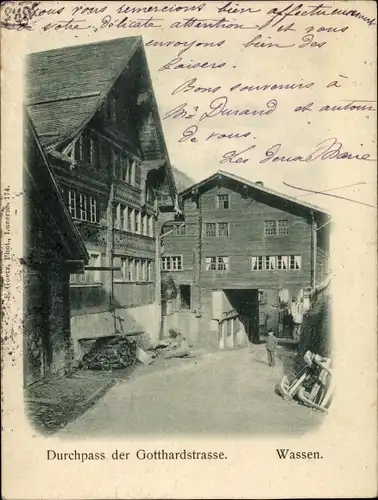 Nous vous remercions bien affectueusement
de votre délicate attention et vous
envoyons bien des
baisers.
Bons souvenirs à
Mr Durand et autour
de vous.
Les deux Marie
E. Goetz, Phot., Luzern. 174.
Durchpass der Gotthardstrasse. Wassen.